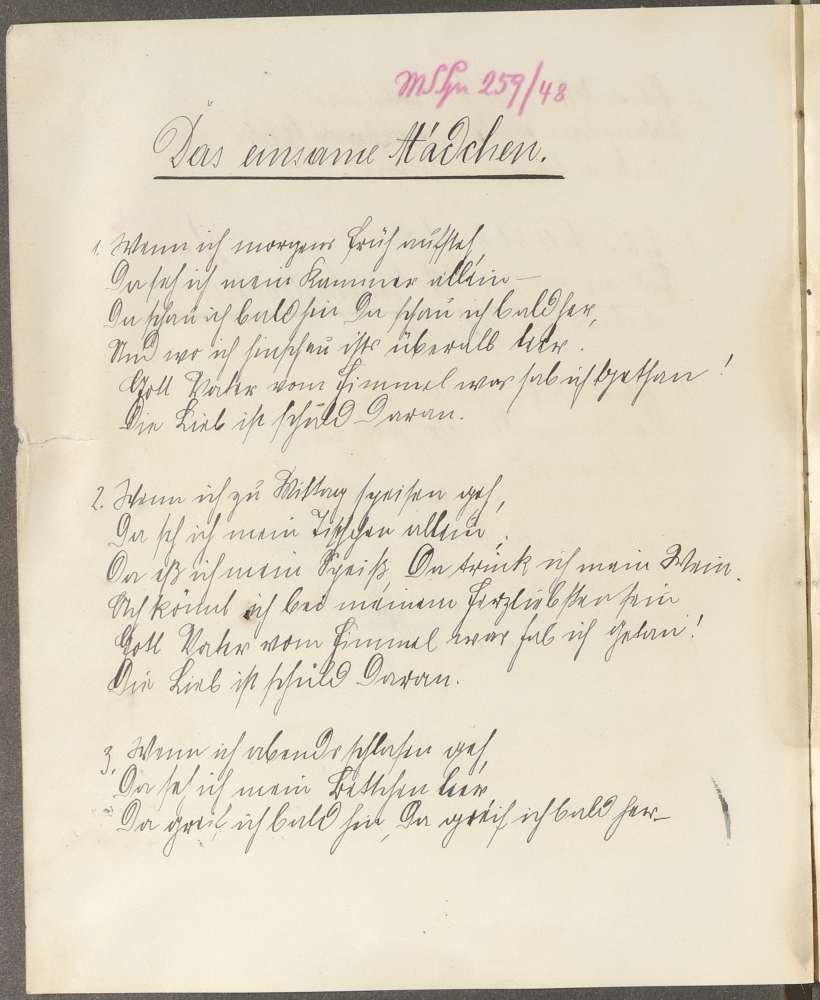 259/48
Das einsame Mädchen.
1. Wenn ich morgens früh aufsteh,
Da seh ich mein Kammer allein –
Da schau ich bald hin Da schau ich bald her,
Und wo ich hinschau ists überall leer.
Gott Vater vom Himmel was hab ich gethan!
Die Lieb ist schuld Daran.
2. Wenn ich zu Mittag speisen geh,
Da seh ich mein Tischchen allein,
Da eß ich mein Speiß, Da trink ich mein Wein.
Ach könnt ich bei meinem Herzliebsten sein
Gott Vater vom Himmel was hab ich getan!
Die Lieb ist schuld Daran.
3. Wenn ich abends schlafen geh,
Da seh ich mein Bettchen leer,
Da greif ich bald hin, Da greif ich bald her –